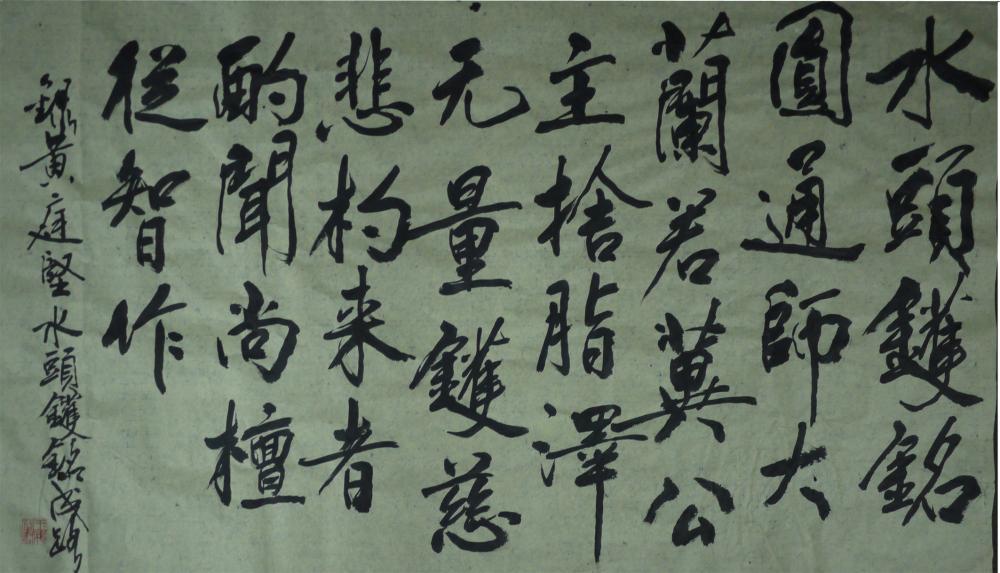 水頭鑊銘
圓通師大
蘭若萬公
主捨脂澤
无量鑊慈
悲杓来者
酌聞尚檀
從智作
録黄庭堅水頭鑊銘